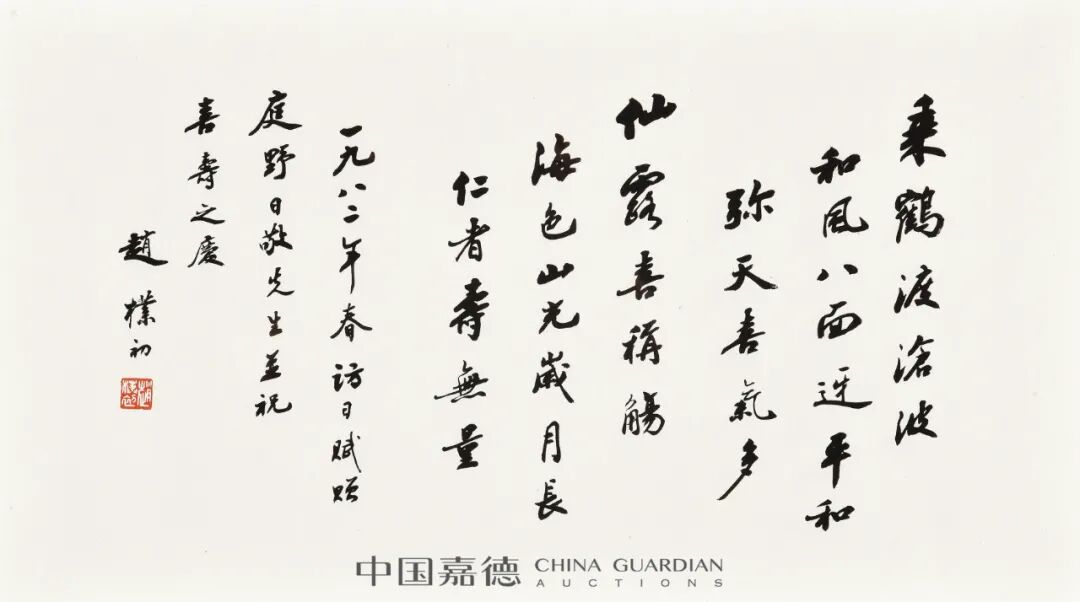 乗鶴渡滄波
和風八面迓平和
弥天喜氣多
仙露喜稱觴
海色山光歲月長
仁者壽無量
一九八二年春訪日賦贈
庭野日敬先生並祝
喜壽之慶
趙樸初
中国嘉德 CHINA GUARDIAN
AUCTIONS